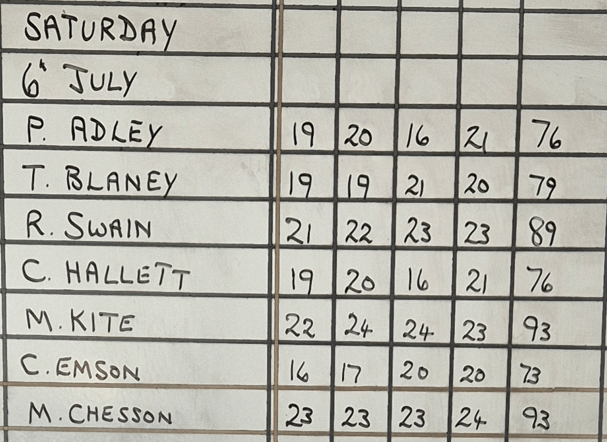 SATURDAY
6th JULY
P. ADLEY 19 20 16 21 76
T. BLANEY 19 19 21 20 79
R. SWAIN 21 22 23 23 89
C. HALLETT 19 20 16 21 76
M. KITE 22 24 24 23 93
C. EMSON 16 17 20 20 73
M. CHESSON 23 23 23 24 93